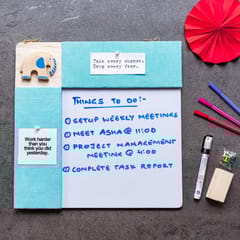 Take every chance.
Drop every fear.
THINGS TO DO:-
① SETUP WEEKLY MEETINGS
② MEET ASHA @ 11:00
③ PROJECT MANAGEMENT
MEETING @ 4:00
④ COMPLETE TASK REPORT
Work harder
than you
think you did
yesterday.